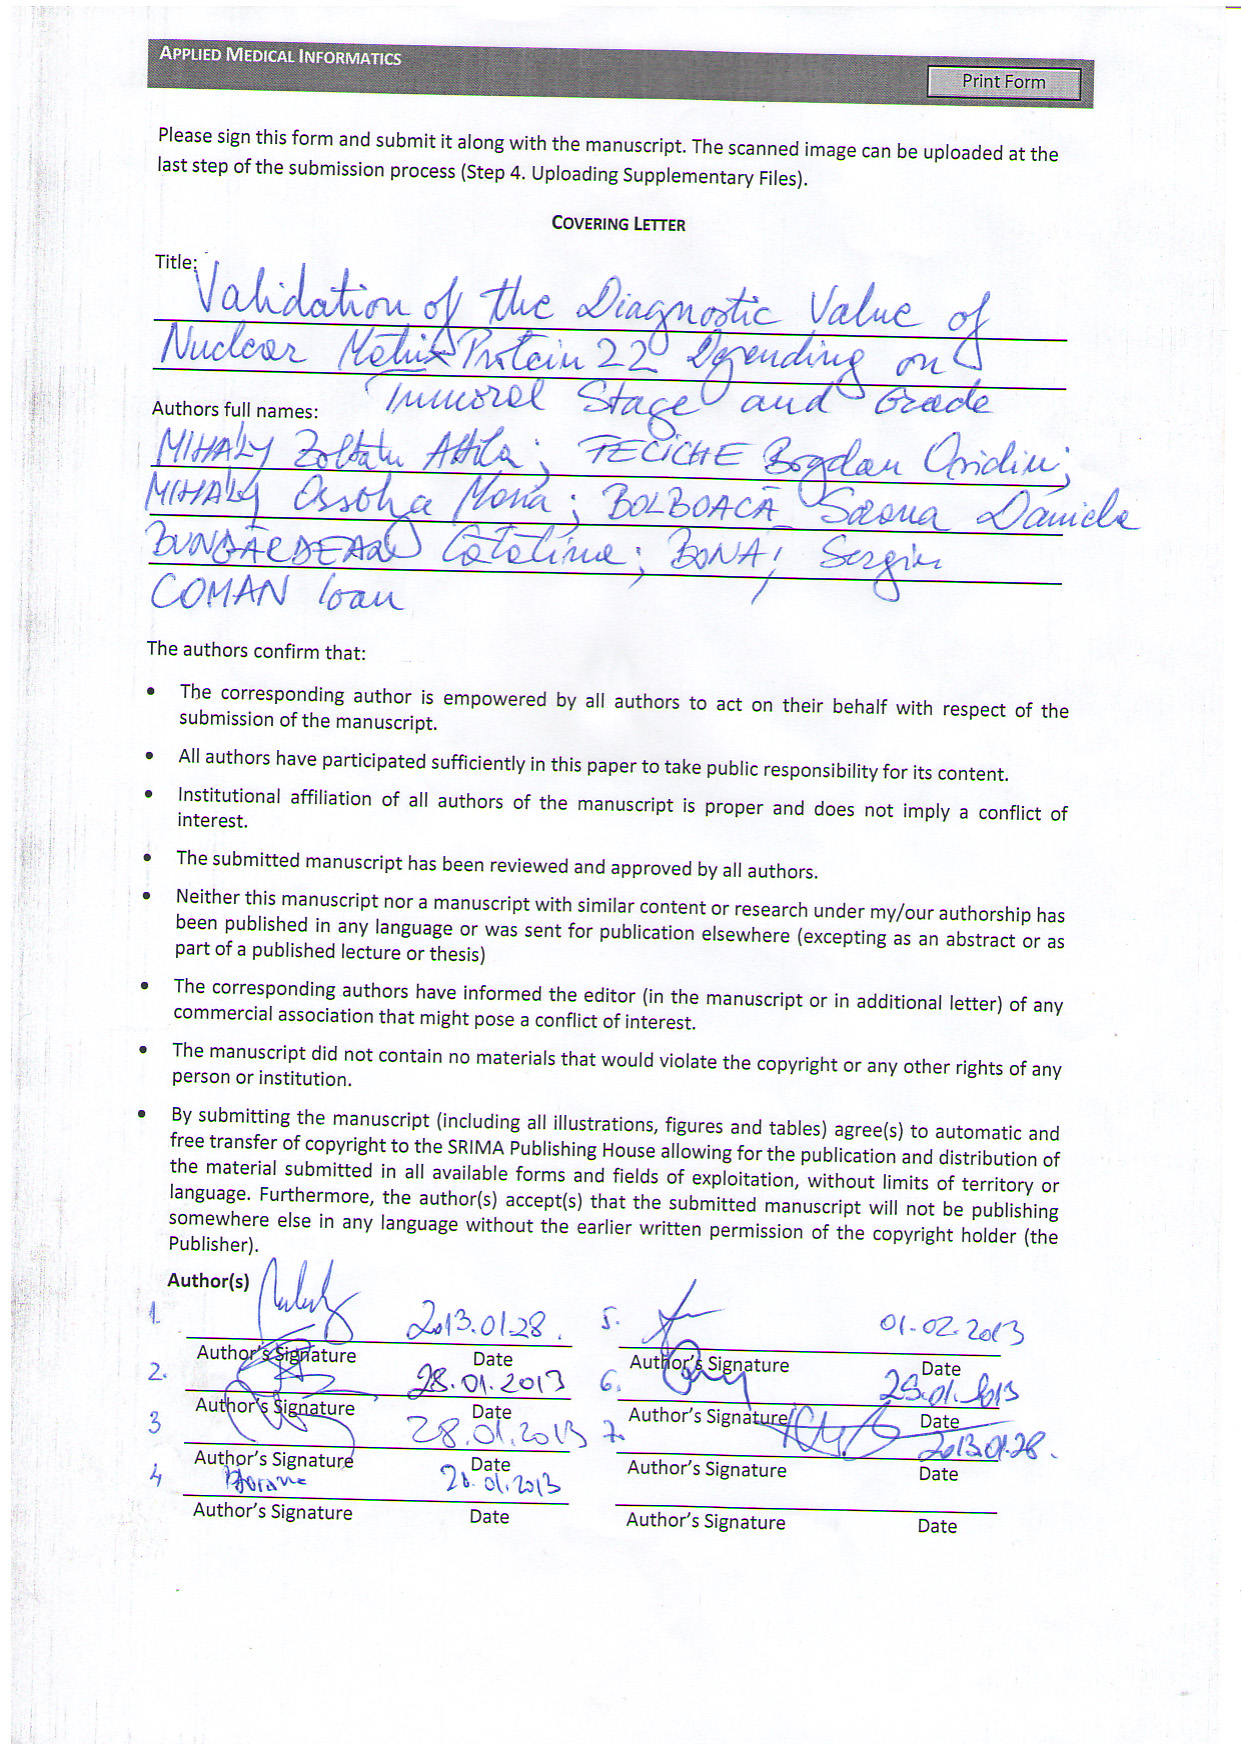 APPLIED MEDICAL INFORMATICS
Print Form
Please sign this form and submit it along with the manuscript. The scanned image can be uploaded at the
last step of the submission process (Step 4. Uploading Supplementary Files).
COVERING LETTER
Title:
Validation of the Diagnostic Value of
Nuclear Matrix Protein 22 Depending on
Tumoral Stage and Grade
Authors full names:
MIHALY Zoltan Attila; FECICHE Bogdan Ovidiu;
MIHALY Orsolya Maria; BOLBOACĂ Sorana Daniela
BUNGĂRDEAN Cătălina; BONA; Sergiu
COMAN Ioan
The authors confirm that:
• The corresponding author is empowered by all authors to act on their behalf with respect of the
submission of the manuscript.
• All authors have participated sufficiently in this paper to take public responsibility for its content.
• Institutional affiliation of all authors of the manuscript is proper and does not imply a conflict of
interest.
• The submitted manuscript has been reviewed and approved by all authors.
• Neither this manuscript nor a manuscript with similar content or research under my/our authorship has
been published in any language or was sent for publication elsewhere (excepting as an abstract or as
part of a published lecture or thesis)
• The corresponding authors have informed the editor (in the manuscript or in additional letter) of any
commercial association that might pose a conflict of interest.
• The manuscript did not contain no materials that would violate the copyright or any other rights of any
person or institution.
• By submitting the manuscript (including all illustrations, figures and tables) agree(s) to automatic and
free transfer of copyright to the SRIMA Publishing House allowing for the publication and distribution of
the material submitted in all available forms and fields of exploitation, without limits of territory or
language. Furthermore, the author(s) accept(s) that the submitted manuscript will not be publishing
somewhere else in any language without the earlier written permission of the copyright holder (the
Publisher).
Author(s)
1. 2013.01.28. 5. 01.02.2013
Author's Signature Date Author's Signature Date
2. 28.01.2013 6.
Author's Signature Date Author's Signature Date
3 28.01.2013 7. 2013.01.28.
Author's Signature Date Author's Signature Date
4
Author's Signature Date Author's Signature Date